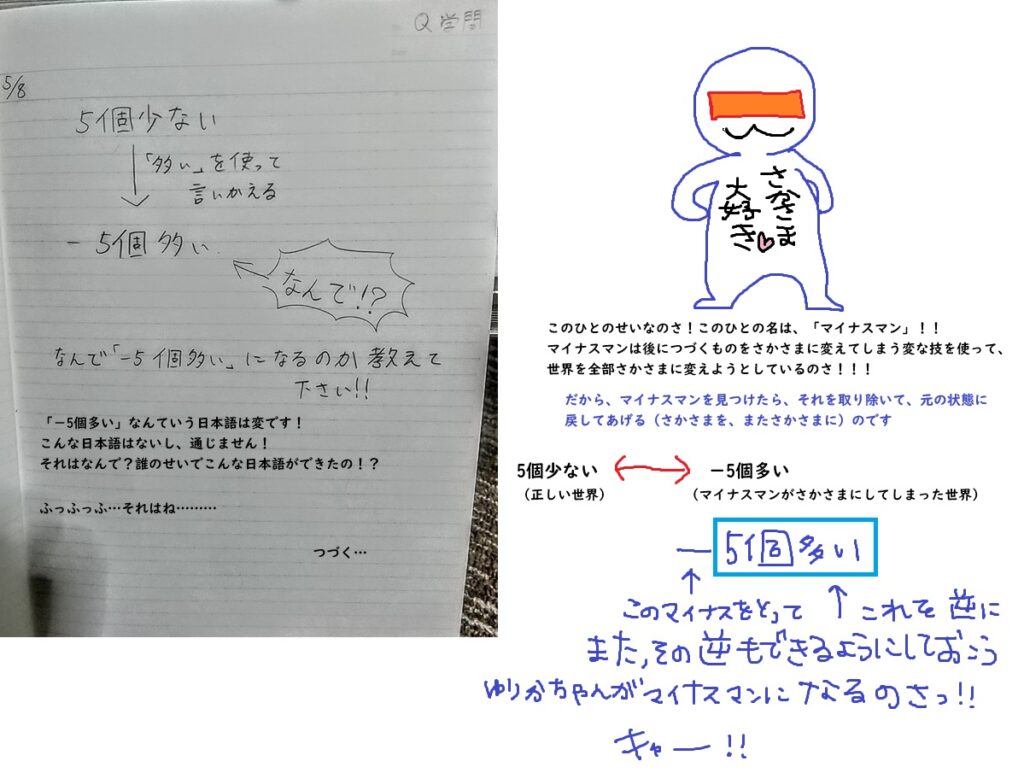 Q 学問
5/8
5個少ない
「多い」を使って
言いかえる
－5個多い
なんで!?
なんで「－5個多い」になるのか教えて
下さい!!
「－5個多い」なんていう日本語は変です！
こんな日本語はないし、通じません！
それはなんで？誰のせいでこんな日本語ができたの！？
ふっふっふ…それはね………
つづく…
さかさま
大好き
このひとのせいなのさ！このひとの名は、「マイナスマン」！！
マイナスマンは後につづくものをさかさまに変えてしまう変な技を使って、
世界を全部さかさまに変えようとしているのさ！！！
だから、マイナスマンを見つけたら、それを取り除いて、元の状態に
戻してあげる（さかさまを、またさかさまに）のです
5個少ない
－5個多い
（正しい世界）
（マイナスマンがさかさまにしてしまった世界）
－5個多い
このマイナスをとって
これを逆に
また,その逆もできるようにしておこう
ゆりかちゃんがマイナスマンになるのさっ!!
キャー!!